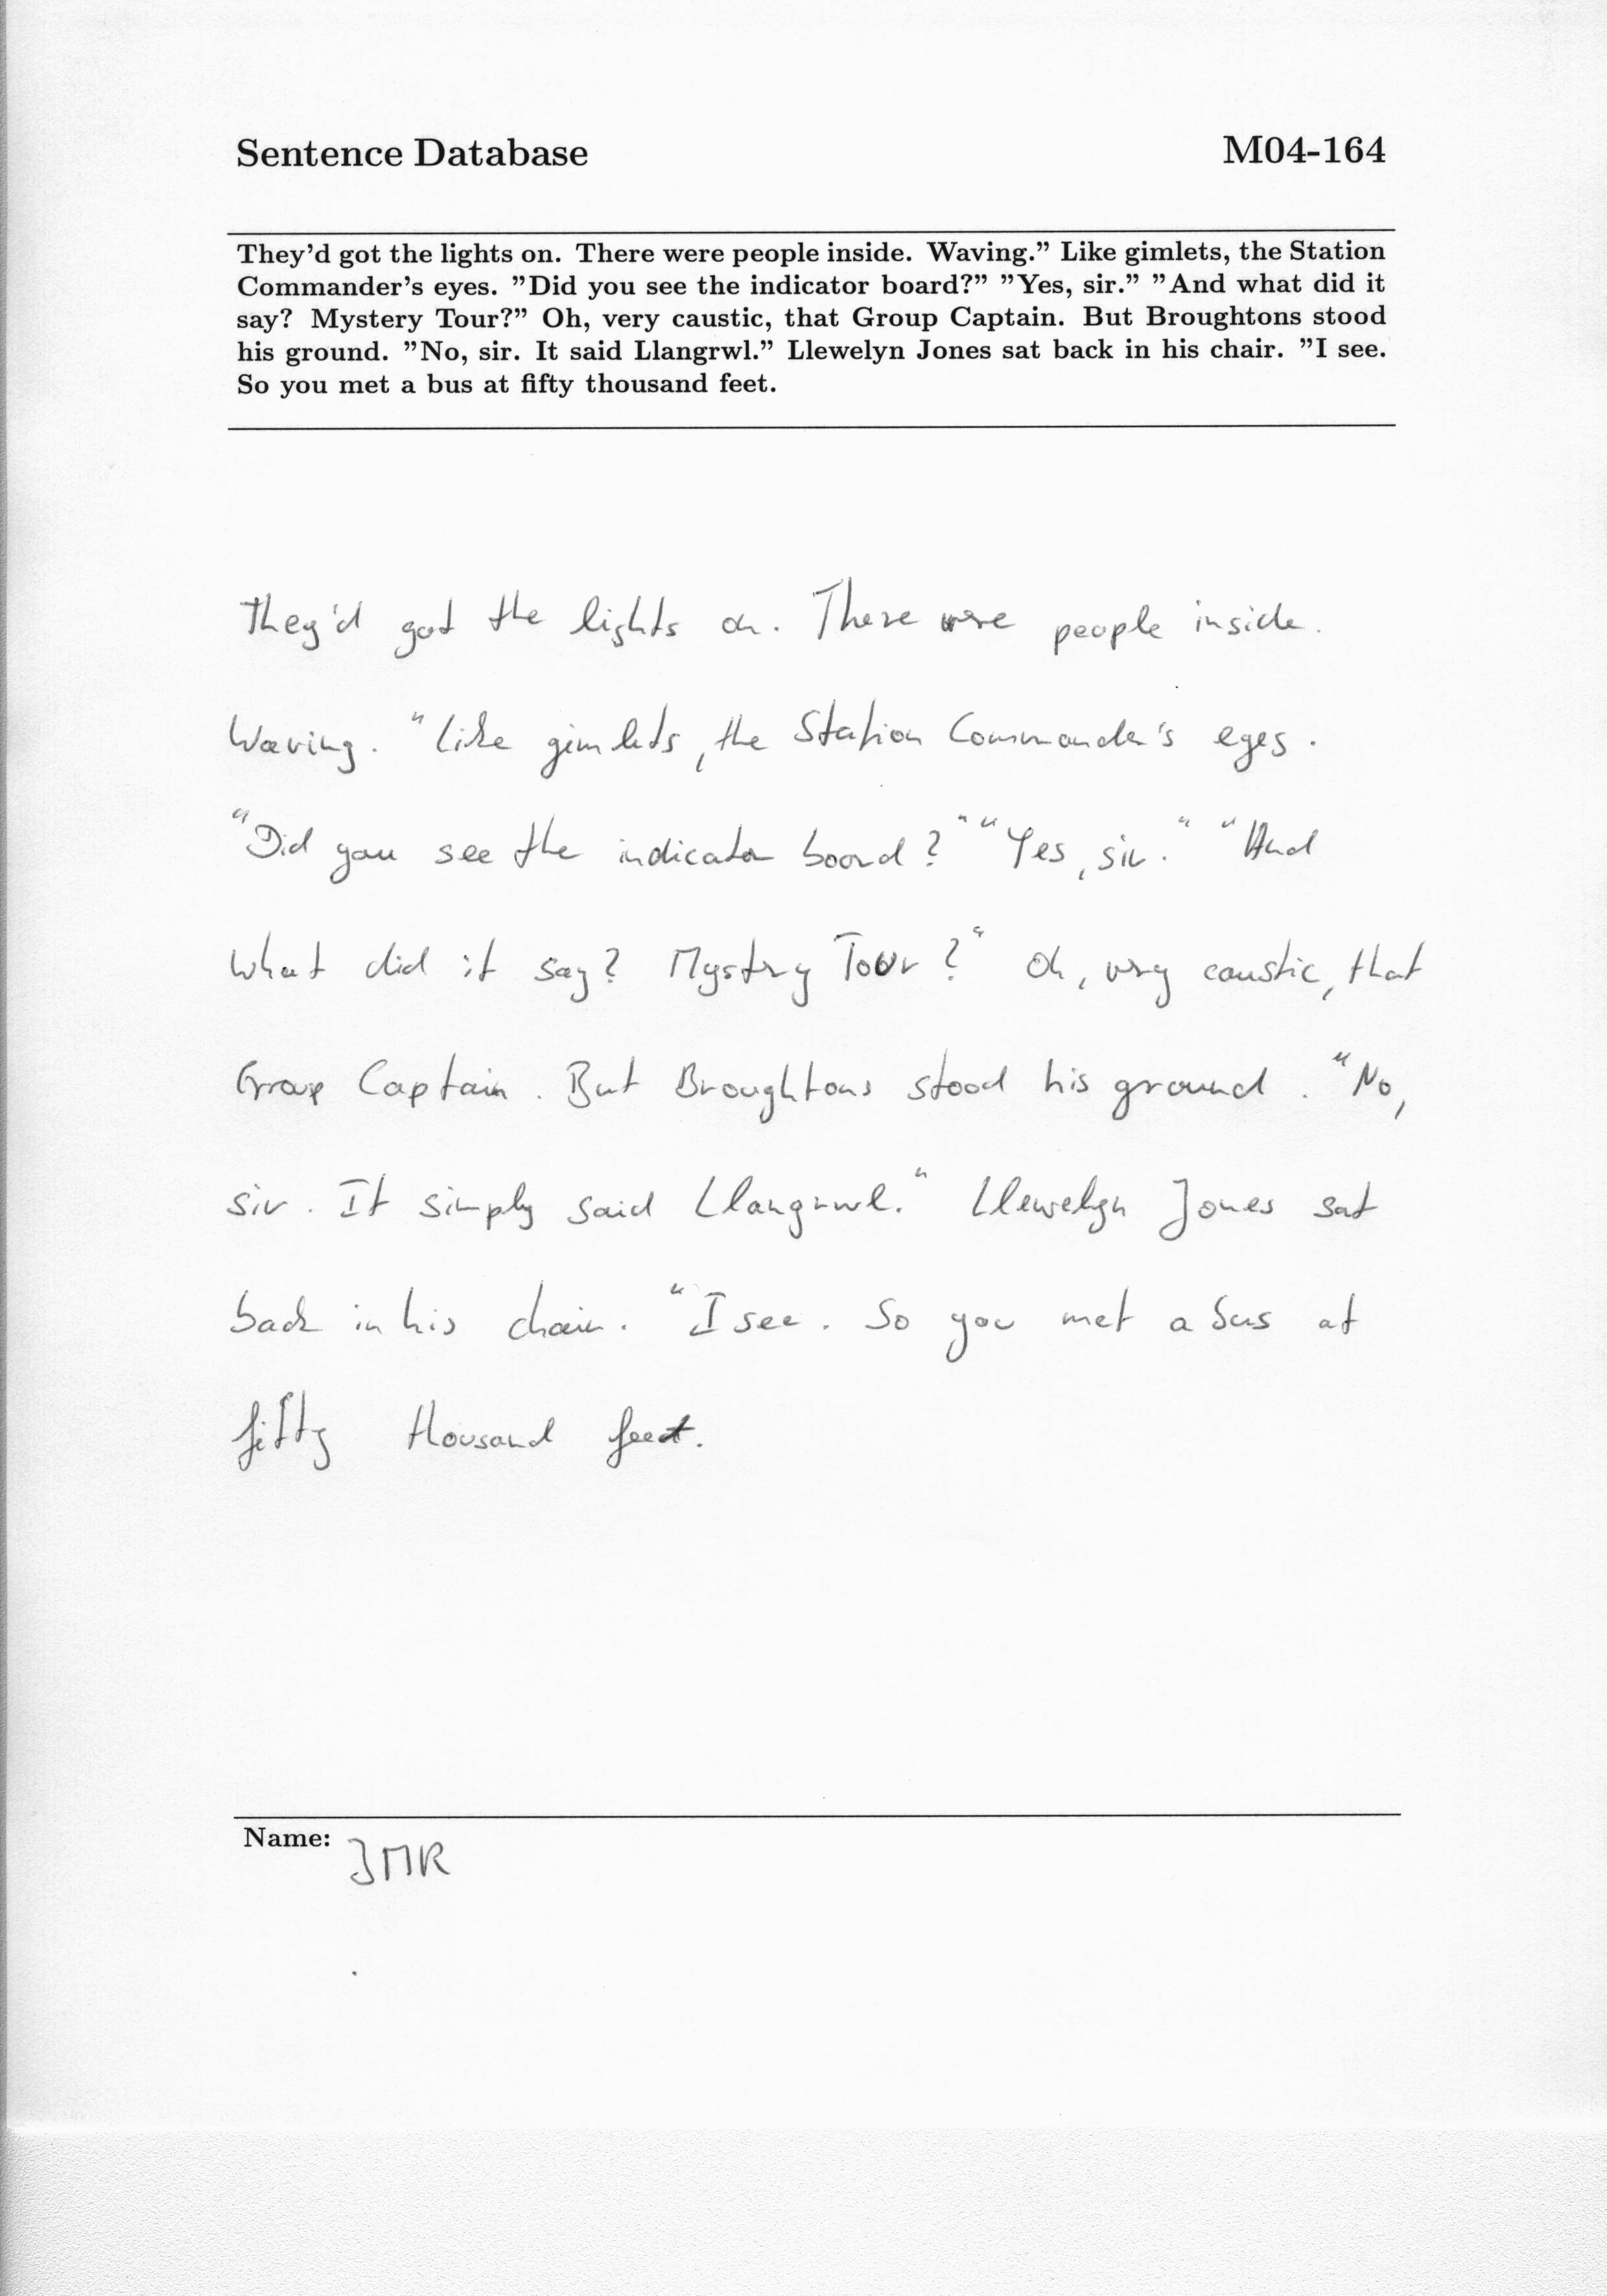 Sentence Database M04-164
They'd got the lights on. There were people inside. Waving.” Like gimlets, the Station
Commander's eyes. ”Did you see the indicator board?” ”Yes, sir.” ”And what did it
say? Mystery Tour?” Oh, very caustic, that Group Captain. But Broughtons stood
his ground. ”No, sir. It said Llangrwl.” Llewelyn Jones sat back in his chair. ”I see.
So you met a bus at fifty thousand feet.
They'd got the lights on. There were people inside.
Waving. "Like gimlets, the Station Commander's eyes.
"Did you see the indicator board?" "Yes, sir." "And
what did it say? Mystery Tour?" Oh, very caustic, that
Group Captain. But Broughtons stood his ground. "No,
sir. It simply said Llangrwl." Llewelyn Jones sat
back in his chair. "I see. So you met a bus at
fifty thousand feet.
Name: JMR